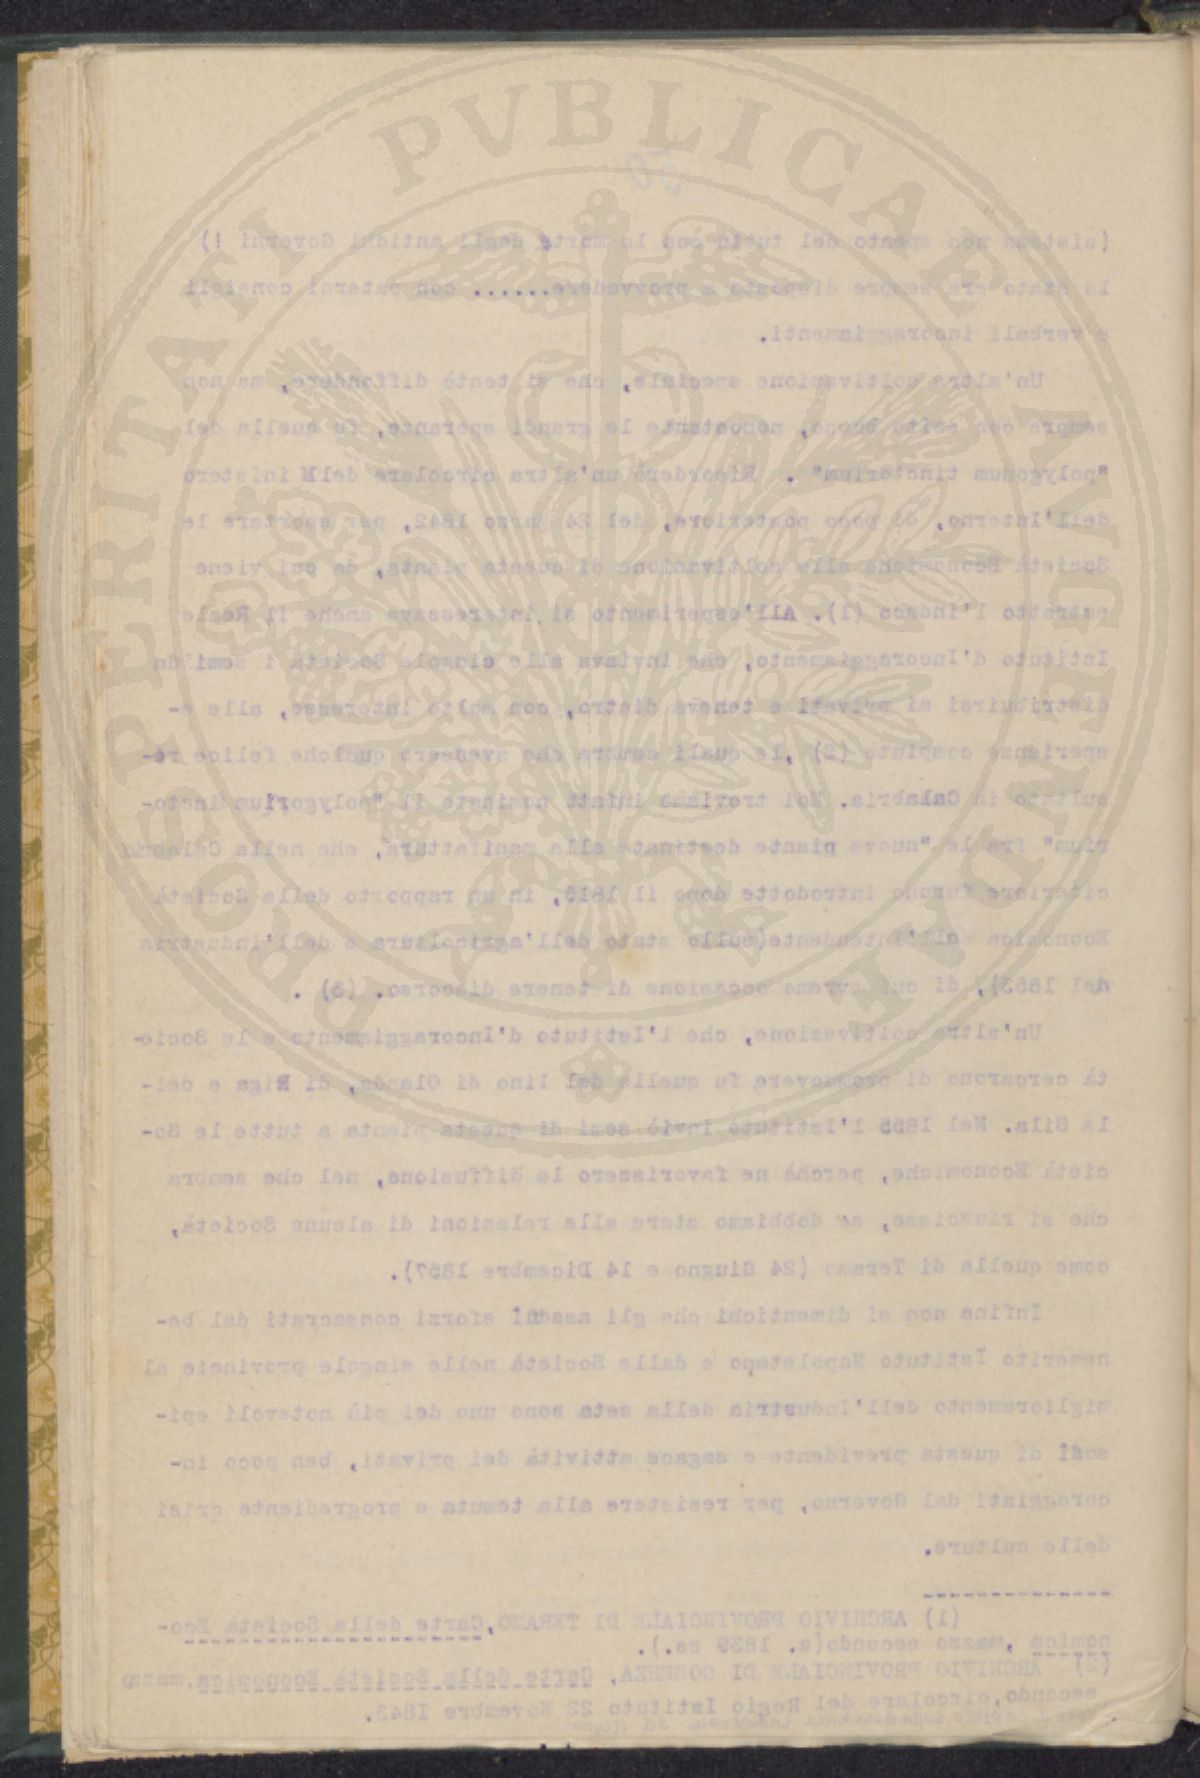 PROSPERITATI PVBLICAE AVGENDAE
50
(sistema non spento del tutto con la morte degli antichi Governi !)
lo stato era sempre disposto a provvedere...... con paterni consigli
e verbali incoraggiamenti.
Un'altra coltivazione speciale, che si tentò diffondere, ma non
sempre con esito buono, nonostante le grandi speranze, fu quella del
"polygonum tinctorium" . Ricorderò un'altra circolare dell Ministero
dell'Interno, di poco posteriore, del 24 Marzo 1842, per esortare le
Società Economiche alla coltivazione di questa pianta, da cui viene
estratto l'indaco (1). All'esperimento si interessava anche il Reale
Istituto d'Incoraggiamento, che inviava alle singole Società i semi da
distribuirsi ai privati e teneva dietro, con molto interesse, alle e-
sperienze compiute (2) ,le quali sembra che avessero qualche felice re-
sultato in Calabria. Noi troviamo infatti nominato il "polygorium incto-
rium" fra le "nuove piante destinate alla manifattura, che nella Calabria
citeriore furono introdotte dopo il 1815, in un rapporto della Società
Economica all'intendente(sullo stato dell'agricoltura e dell'industria
del 1853), di cui avremo occasione di tenere discorso. (3) .
Un'altra coltivazione, che l'Istituto d'Incoraggiamento e le Socie-
tà cercarono di promuovere fu quella del lino di Olanda, di Riga e del-
la Sila. Nel 1855 l'Istituto inviò semi di questa pianta a tutte le So-
cietà Economiche, perchè ne favorissero la diffusione, nel che sembra
che si riuscisse, se dobbiamo stare alle relazioni di alcune Società,
come quella di Teramo (24 Giugno e 14 Dicembre 1857).
Infine non si dimentichi che gli assdui sforzi consacrati dal be-
nemerito Istituto Napoletano e dalle Società nelle singole provincie al
miglioramento dell'Industria della seta sono uno dei più notevoli epi-
sodi di questa previdente e sagace attività dei privati, ben poco in-
coraggiati dal Governo, per resistere alla temuta e progrediente crisi
delle culture.
(1) ARCHIVIO PROVINCIALE DI TERAMO,Carte della Società Eco-
nomica ,mazzo secondo(a. 1839 ss.).
(2) ARCHIVIO PROVINCIALE DI COSENZA, Carte della Società Economica,mazzo
secondo,circolare del Regio Istituto 22 Novembre 1843.